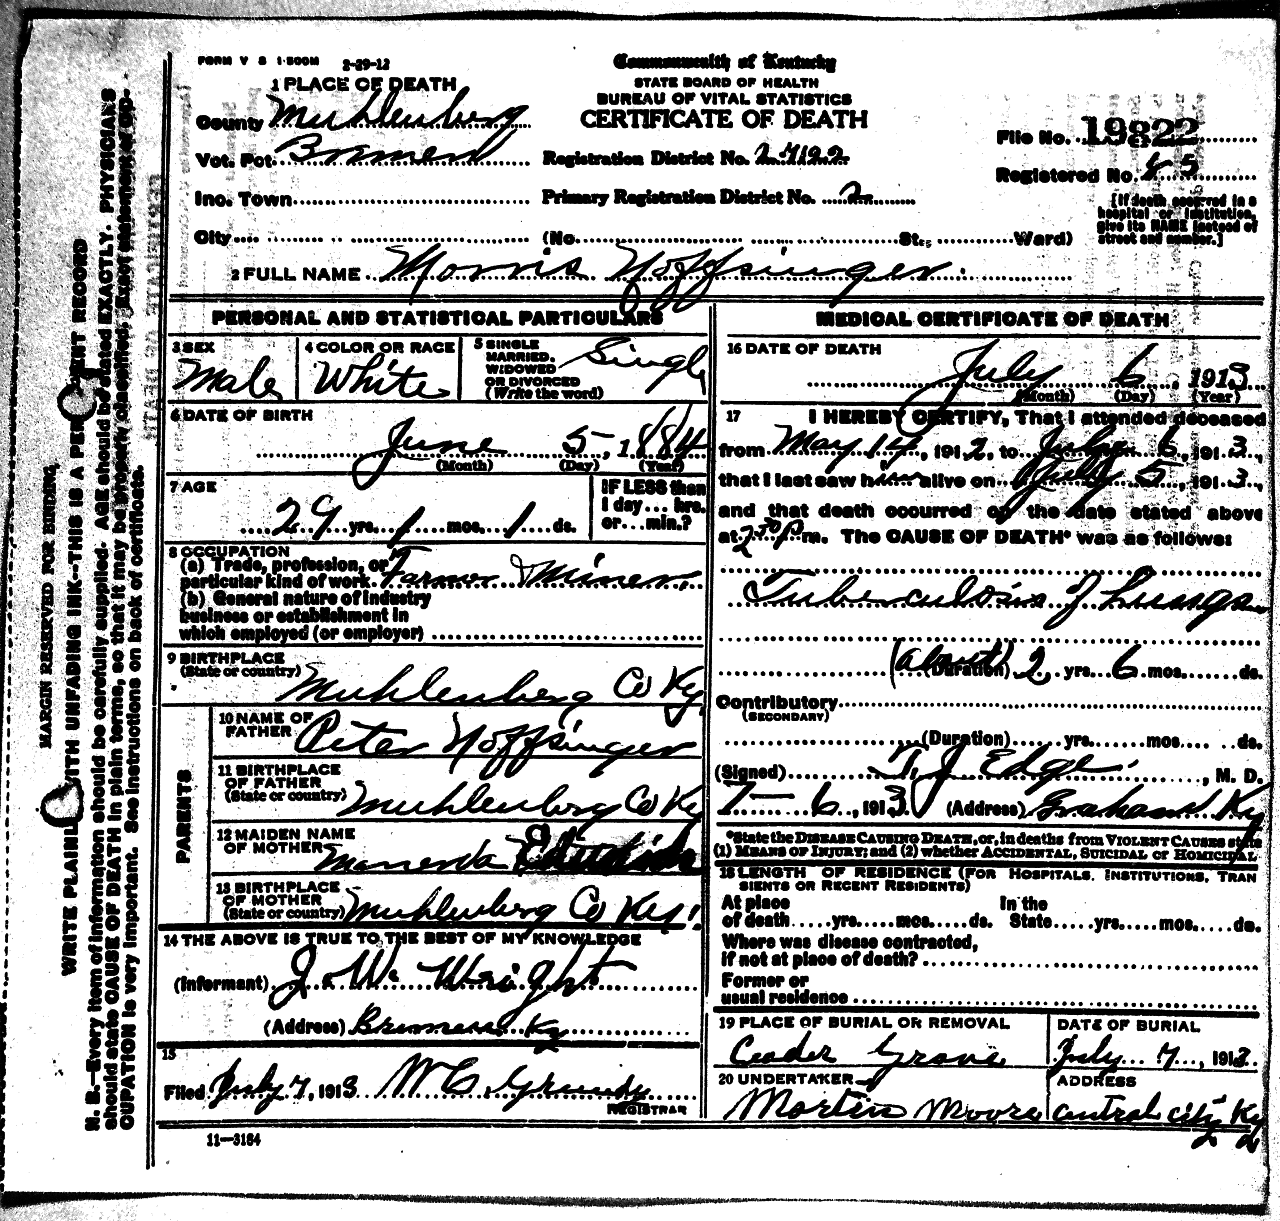 FORM V S 1-500M 2-29-12
Commonwealth of Kentucky
STATE BOARD OF HEALTH
BUREAU OF VITAL STATISTICS
CERTIFICATE OF DEATH
1 PLACE OF DEATH
County Muhlenberg
Vot. Pct.
Registration District No.
Inc. Town
Primary Registration District No. 2
City (No. St., Ward)
File No. 19822
Registered No. 45
[If death occurred in a
hospital or institution,
give its NAME instead of
street and number.]
2 FULL NAME Morris Noffsinger.
PERSONAL AND STATISTICAL PARTICULARS
3 SEX
Male
4 COLOR OR RACE
White
5 SINGLE
MARRIED,
WIDOWED
OR DIVORCED
(Write the word)
Single
6 DATE OF BIRTH
June 5, 1884
(Month) (Day) (Year)
7 AGE
29 yrs. 1 mos. 1 ds.
IF LESS than
1 day... hrs.
or... min.?
8 OCCUPATION
(a) Trade, profession, or
particular kind of work. Farmer & Miner.
(b) General nature of industry
business or establishment in
which employed (or employer)
9 BIRTHPLACE
(State or country)
Muhlenberg Co Ky.
PARENTS
10 NAME OF
FATHER
Peter Noffsinger
11 BIRTHPLACE
OF FATHER
(State or country)
Muhlenberg Co Ky
12 MAIDEN NAME
OF MOTHER
13 BIRTHPLACE
OF MOTHER
(State or country)
Muhlenberg Co Ky.
14 THE ABOVE IS TRUE TO THE BEST OF MY KNOWLEDGE
(Informant) J. W. Wright
(Address) Ky
15
Filed July 7, 1913 W C. Grundy
REGISTRAR
11—3184
MEDICAL CERTIFICATE OF DEATH
16 DATE OF DEATH
July 6, 1913
(Month) (Day) (Year)
17 I HEREBY CERTIFY, That I attended deceased
from May 14, 1912, to July 6, 1913,
that I last saw him alive on July 5, 1913,
and that death occurred on the date stated above
at 2 30 P m. The CAUSE OF DEATH* was as follows:
Tuberculosis of Lungs
(about) (Duration) 2 yrs. 6 mos. ds.
Contributory
(SECONDARY)
(Duration) yrs. mos. ds.
(Signed) T. J Edge, M. D.
7—6, 1913 (Address) Graham Ky
*State the DISEASE CAUSING DEATH, or, in deaths from VIOLENT CAUSES state
(1) MEANS OF INJURY; and (2) whether ACCIDENTAL, SUICIDAL or HOMICIDAL
18 LENGTH OF RESIDENCE (FOR HOSPITALS, INSTITUTIONS, TRAN
SIENTS OR RECENT RESIDENTS)
At place
of death yrs. mos. ds.
In the
State yrs. mos. ds.
Where was disease contracted,
if not at place of death?
Former or
usual residence
19 PLACE OF BURIAL OR REMOVAL
Ceader Grove
DATE OF BURIAL
July 7, 1913
20 UNDERTAKER
Martin Moore
ADDRESS
Central City Ky
MARGIN RESERVED FOR BINDING
WRITE PLAINLY WITH UNFADING INK—THIS IS A PERMANENT RECORD
N. B.—Every item of information should be carefully supplied. AGE should be stated EXACTLY. PHYSICIANS
should state CAUSE OF DEATH in plain terms, so that it may be properly classified. Exact statement of OC-
CUPATION is very important. See instructions on back of certificate.